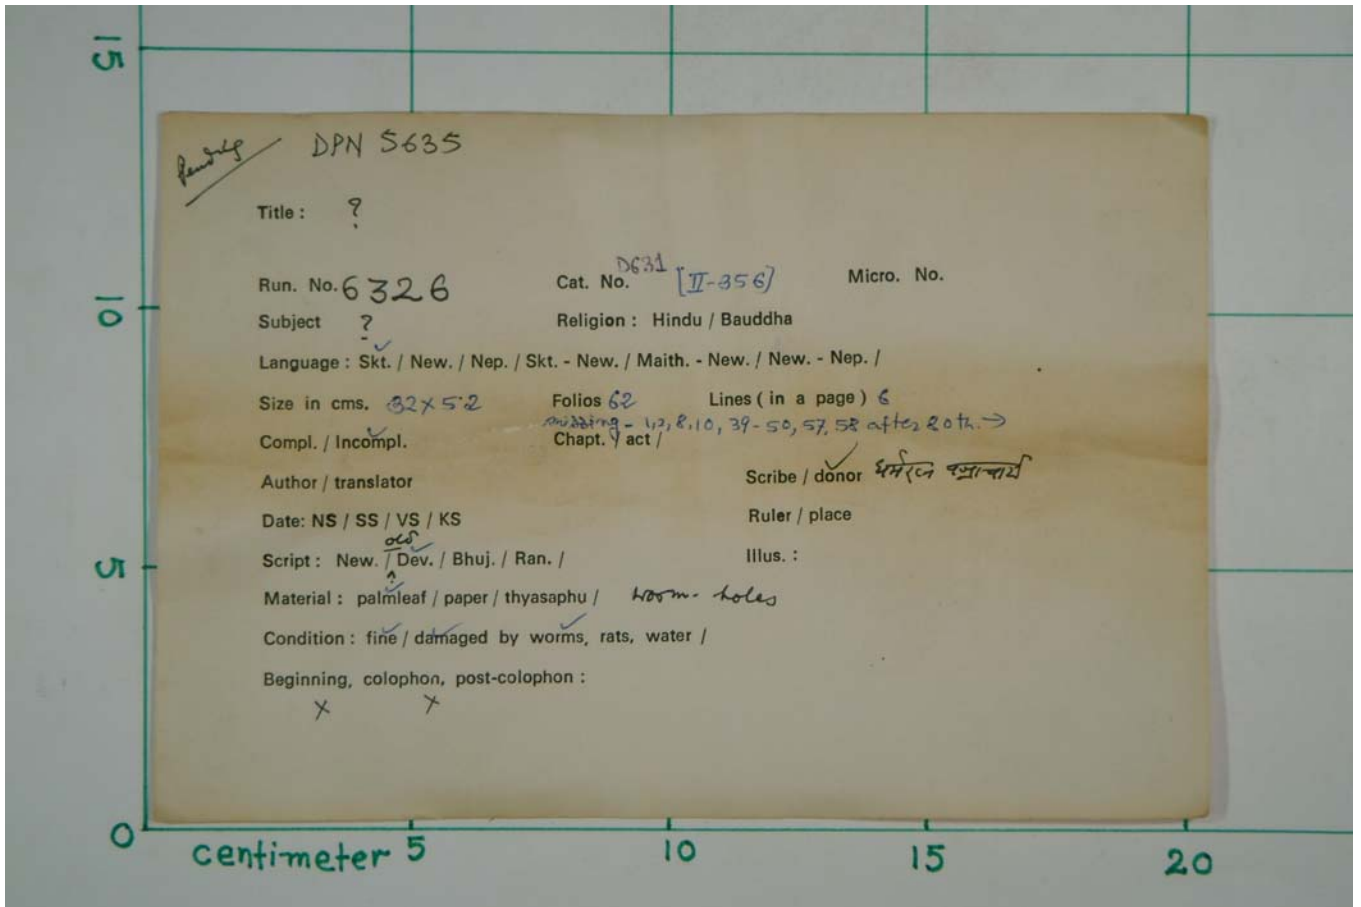 15
Pending DPN 5635
Title : ?
D631
Run. No. 6326 Cat. No. [II-356] Micro. No.
10
Subject ? Religion : Hindu / Bauddha
Language : Skt. / New. / Nep. / Skt. - New. / Maith. - New. / New. - Nep. /
Size in cms. 32×5.2 Folios 62 Lines ( in a page ) 6
missing - 1,2, 8, 10, 39-50, 57, 58 after 80th. →
Compl. / Incompl. Chapt. / act /
Author / translator Scribe / donor धर्मरत्न वज्राचार्य
Date: NS / SS / VS / KS Ruler / place
old
5
Script : New. / Dev. / Bhuj. / Ran. / Illus. :
Material : palmleaf / paper / thyasaphu / worm-holes
Condition : fine / damaged by worms, rats, water /
Beginning, colophon, post-colophon :
× ×
0
centimeter 5 10 15 20